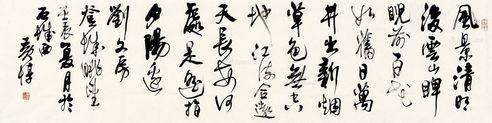 風景清明
後雲山睥
睨前百花
如舊日萬
井出新烟
草色無空
地江流合遠
天長安何
處是遙指
夕陽邊
劉文房
登城眺望
壬辰夏月於
石城西